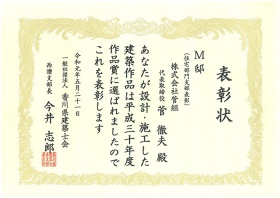 表彰状
M邸
(住宅部門支部表彰)
株式会社菅組
代表取締役 菅 徹夫 殿
あなたが設計・施工した
建築作品は平成三十年度
作品賞に選ばれましたので
これを表彰します
令和元年五月二十一日
一般社団法人 香川県建築士会
西讃支部長 今井 志郎